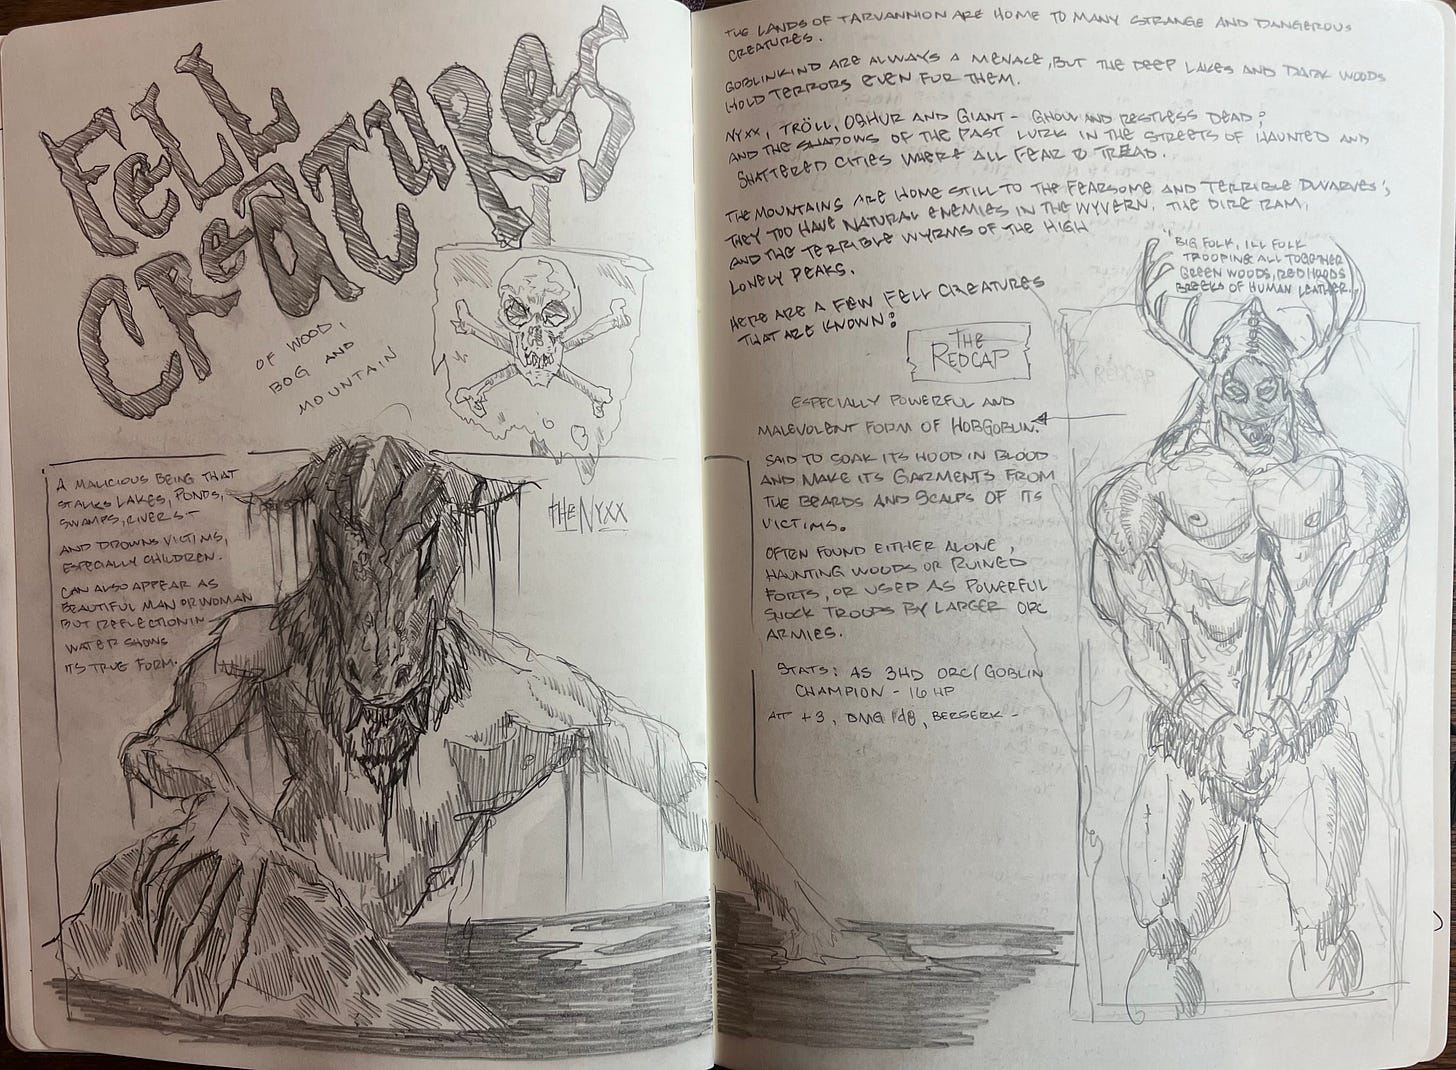 FELL
CREATURES
OF WOOD,
BOG AND
MOUNTAIN
A MALICIOUS BEING THAT
STALKS LAKES, PONDS,
SWAMPS, RIVERS -
AND DROWNS VICTIMS,
ESPECIALLY CHILDREN.
CAN ALSO APPEAR AS
BEAUTIFUL MAN OR WOMAN
BUT REFLECTION IN
WATER SHOWS
ITS TRUE FORM.
THE NYXX
THE LANDS OF TARVANNION ARE HOME TO MANY STRANGE AND DANGEROUS
CREATURES.
GOBLINKIND ARE ALWAYS A MENACE, BUT THE DEEP LAKES AND DARK WOODS
HOLD TERRORS EVEN FOR THEM.
NYXX, TRÖLL, OGHUR AND GIANT - GHOUL AND RESTLESS DEAD;
AND THE SHADOWS OF THE PAST LURK IN THE STREETS OF HAUNTED AND
SHATTERED CITIES WHERE ALL FEAR TO TREAD.
THE MOUNTAINS ARE HOME STILL TO THE FEARSOME AND TERRIBLE DWARVES;
THEY TOO HAVE NATURAL ENEMIES IN THE WYVERN, THE DIRE RAM,
AND THE TERRIBLE WYRMS OF THE HIGH
LONELY PEAKS.
HERE ARE A FEW FELL CREATURES
THAT ARE KNOWN:
"BIG FOLK, ILL FOLK
TROOPING ALL TOGETHER
GREEN WOODS, RED HOODS
BREEKS OF HUMAN LEATHER."
THE
REDCAP
ESPECIALLY POWERFUL AND
MALEVOLENT FORM OF HOBGOBLIN.
SAID TO SOAK ITS HOOD IN BLOOD
AND MAKE ITS GARMENTS FROM
THE BEARDS AND SCALPS OF ITS
VICTIMS.
OFTEN FOUND EITHER ALONE,
HAUNTING WOODS OR RUINED
FORTS, OR USED AS POWERFUL
SHOCK TROOPS BY LARGER ORC
ARMIES.
STATS: AS 3HD ORC/GOBLIN
CHAMPION - 16 HP
ATT +3, DMG 1d8, BERSERK -